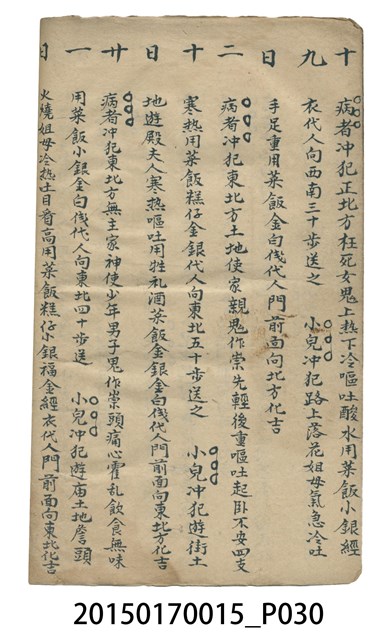 十九日
病者冲犯正北方枉死女鬼上热下冷嘔吐酸水用菜飯小銀經
衣代人向西南三十步送之 小兒冲犯路上落花姐母氣急冷吐
手足重用菜飯金白伐代人門前面向北方化吉
二十日
病者冲犯東北方土地使家親鬼作祟先輕後重嘔吐起卧不安四支
寒热用菜飯糕仔金銀代人向東北五十步送之 小兒冲犯遊街土
地遊殿夫人寒热嘔吐用牲礼酒菜飯金銀金白伐代人門前面向東北方化吉
廿一日
病者冲犯東北方無主家神使少年男子鬼作祟頭痛心霍乱飲食無味
用菜飯小銀金白伐代人向東北四十步送 小兒冲犯遊庙土地詹頭
火燒姐母冷热土目肴高用菜飯糕仔小銀福金經衣代人門前面向東北化吉
20150170015_P030